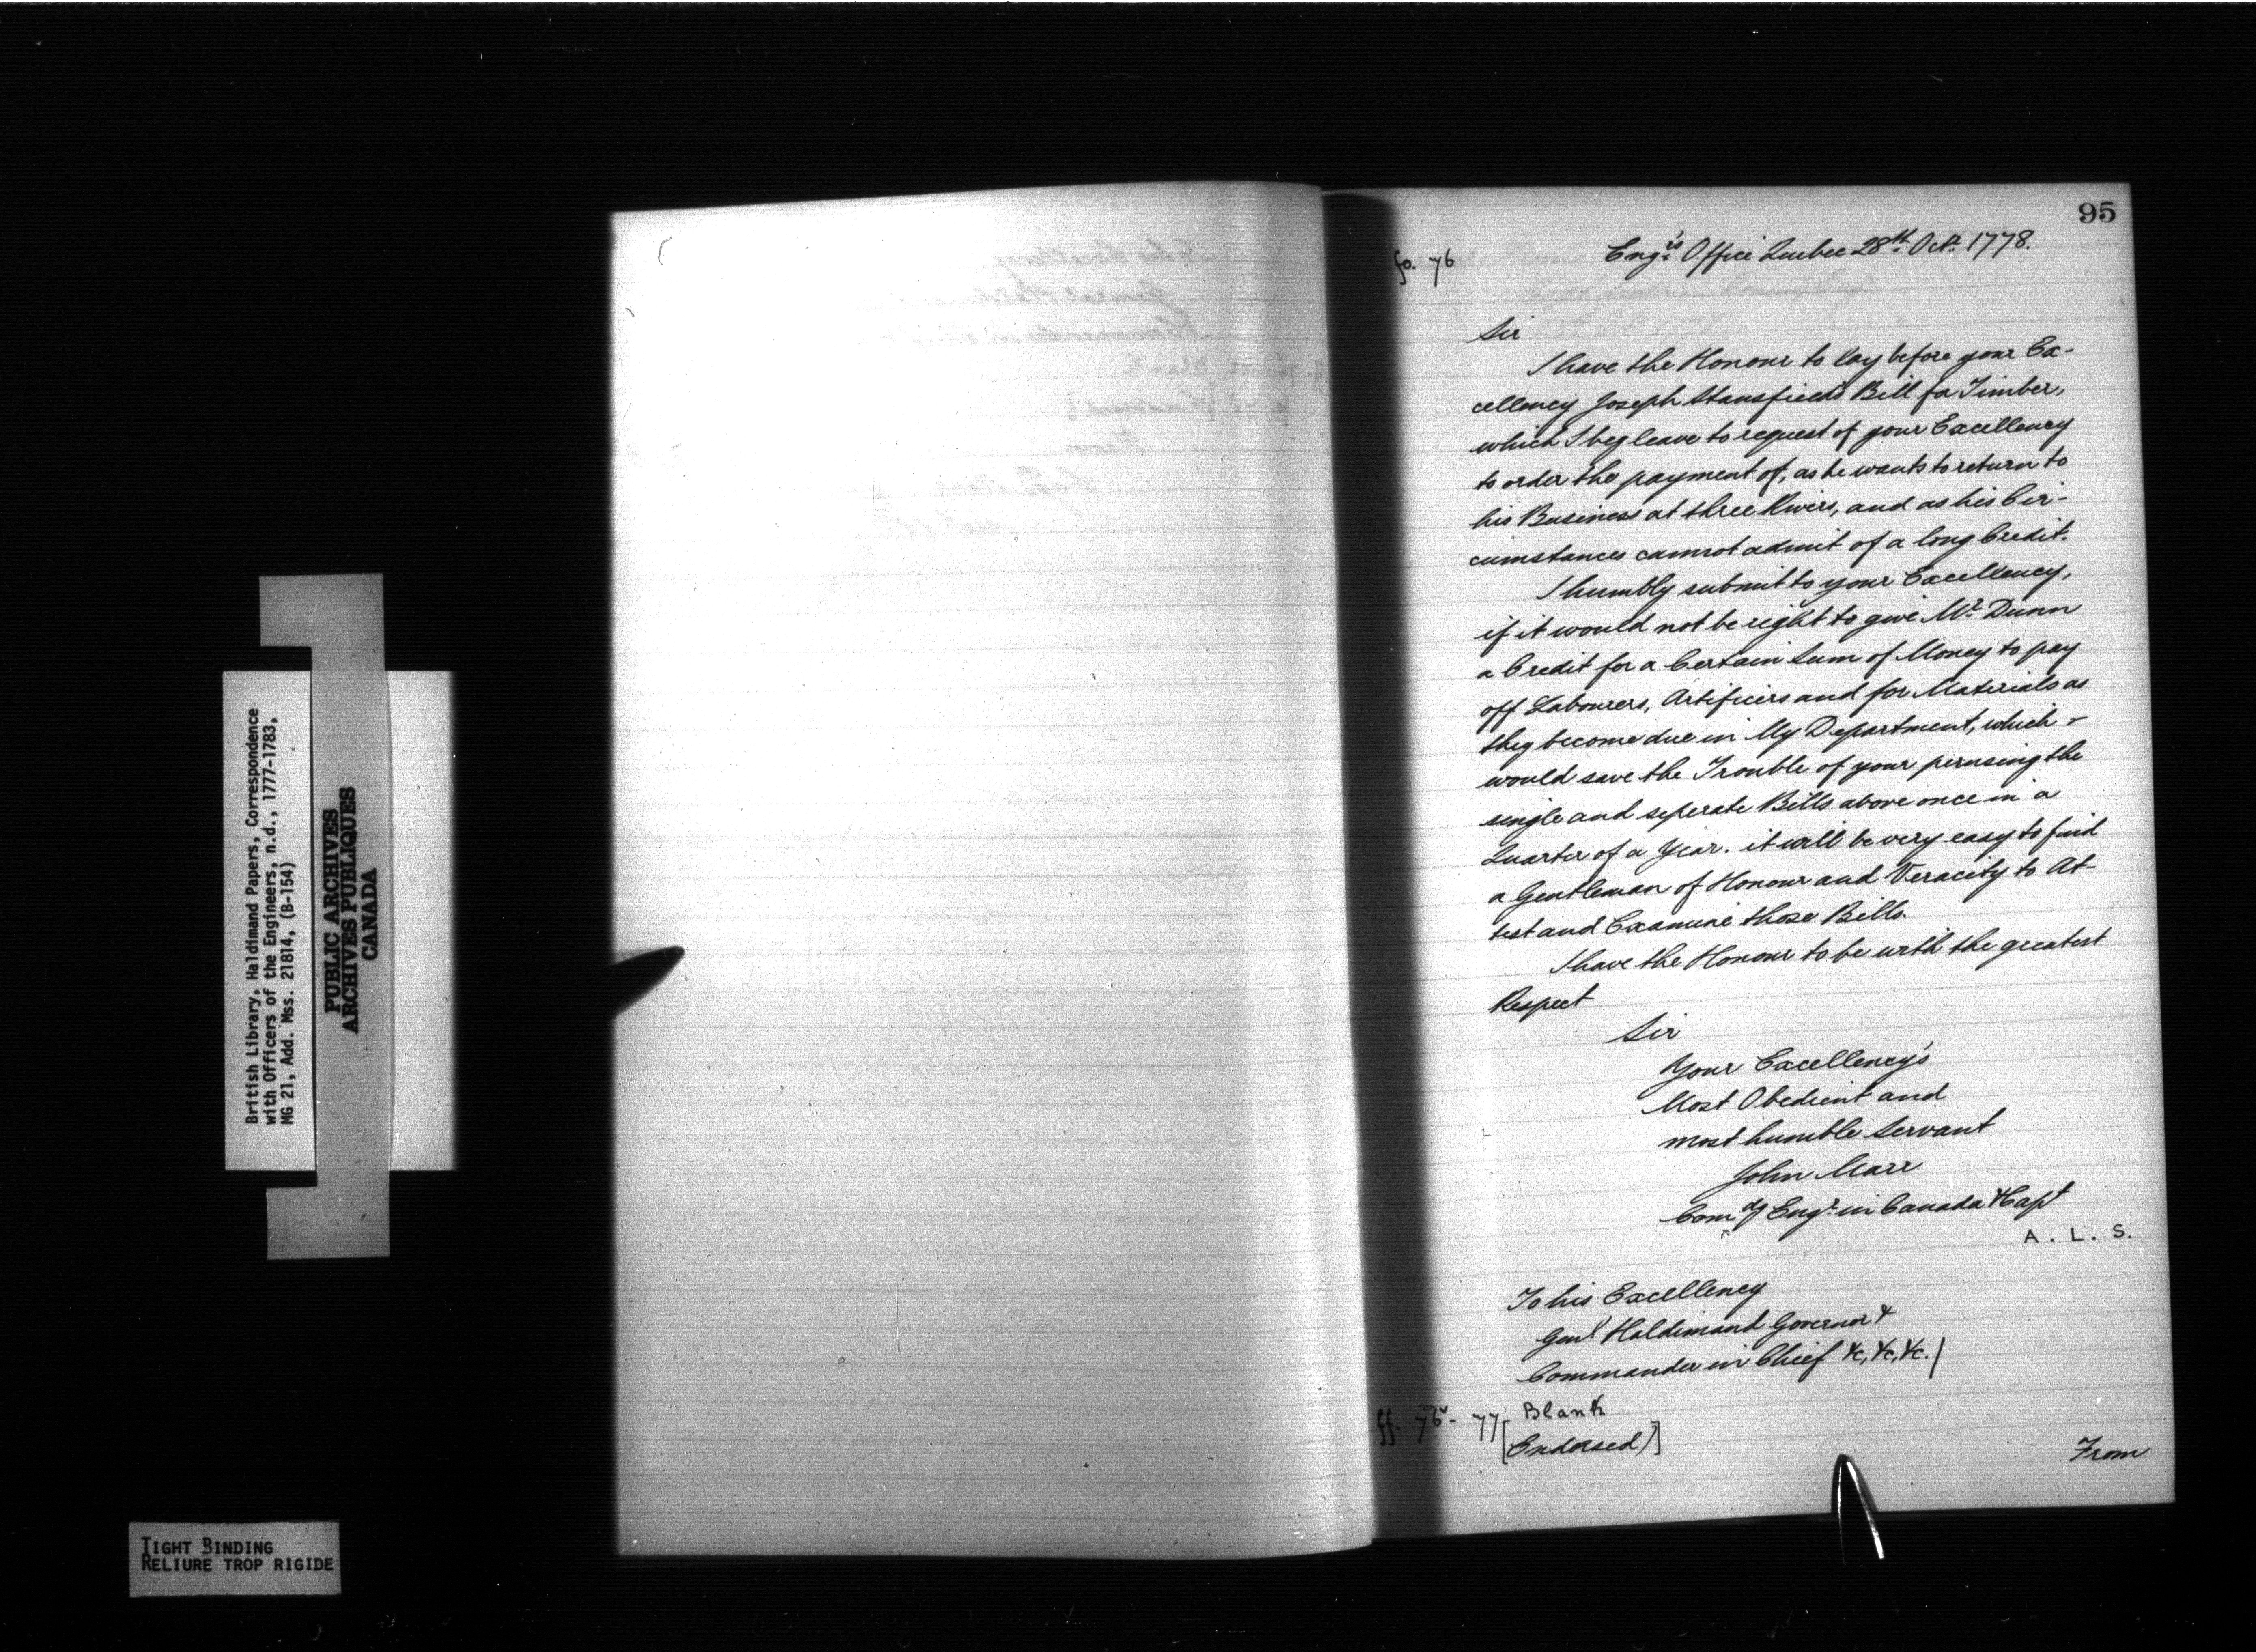 British Library, Haldimand Papers, Correspondence
with Officers of the Engineers, n.d., 1777-1783,
MG 21, Add. Mss. 21814, (B-154)
PUBLIC ARCHIVES
ARCHIVES PUBLIQUES
CANADA
TIGHT BINDING
RELIURE TROP RIGIDE
95
fo. 76
Eng.rs Office Quebec 28th. Octr. 1778.
Sir
I have the Honour to lay before your Ex-
cellency Joseph Stansfield's Bill for Timber,
which I beg leave to request of your Excellency
to order the payment of, as he wants to return to
his Business at three Rivers, and as his Cir-
cumstances cannot admit of a long Credit.
I humbly submit to your Excellency,
if it would not be right to give Mr. Dunn
a Credit for a Certain Sum of Money to pay
off Labourers, Artificers and for Materials as
they become due in My Department, which -
would save the Trouble of your perusing the
single and seperate Bills above once in a
Quarter of a Year. it will be very easy to find
a Gentleman of Honour and Veracity to At-
test and Examine those Bills.
I have the Honour to be with the greatest
Respect
Sir
Your Excellency's
Most Obedient and
most humble Servant
John Marr
Comdg Engr. in Canada & Capt
A. L. S.
To his Excellency
Genl Haldimand Governor &
Commander in Chief &c, &c, &c. /
ff. 76v - 77 Blank
[Endorsed)]
From